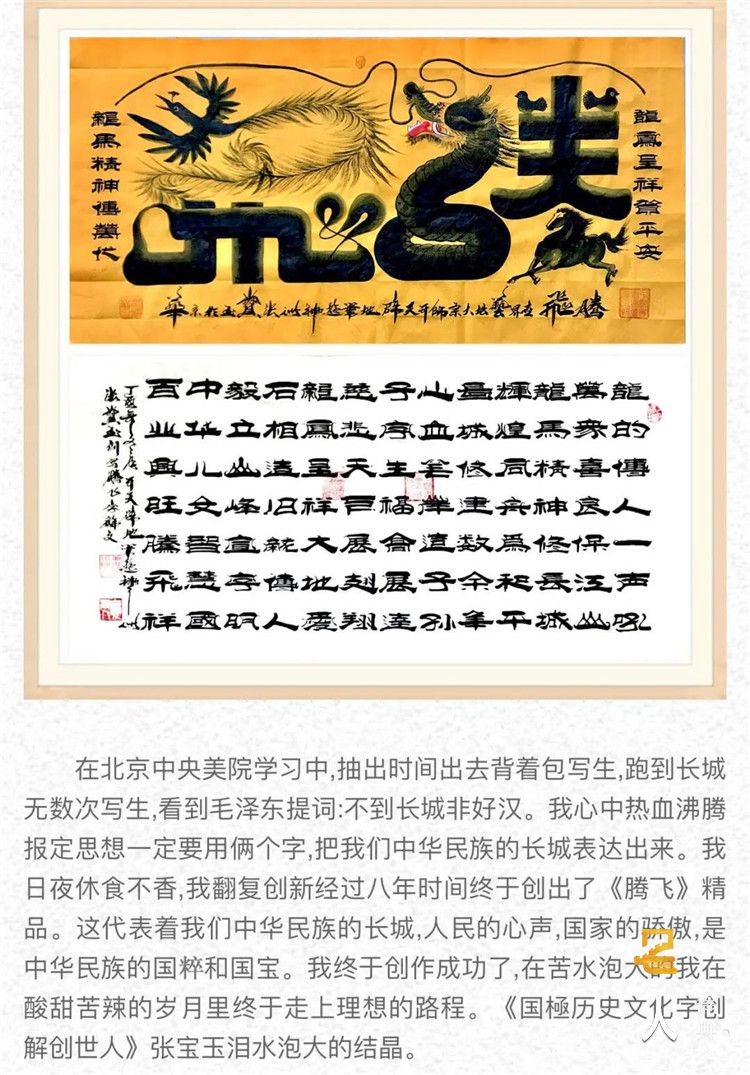 龍鳳呈祥平安
龍馬精神傳萬代
騰飛
龍的傳人一声吼
萬衆喜保江山
龍馬精神修長城
輝煌同爲和平
城修建数余年
心血造子孙
子生福展達
慈悲天展翔
龍鳳呈祥大地爱
石相造旧就傳人
毅立山峰宣
中华儿女智慧國
百业興旺騰飛祥
在北京中央美院学习中,抽出时间出去背着包写生,跑到长城
无数次写生,看到毛泽东提词:不到长城非好汉。我心中热血沸腾
报定思想一定要用俩个字,把我们中华民族的长城表达出来。我
日夜休食不香,我翻复创新经过八年时间终于创出了《腾飞》精
品。这代表着我们中华民族的长城,人民的心声,国家的骄傲,是
中华民族的国粹和国宝。我终于创作成功了,在苦水泡大的我在
酸甜苦辣的岁月里终于走上理想的路程。《国極历史文化字创
解创世人》张宝玉泪水泡大的结晶。